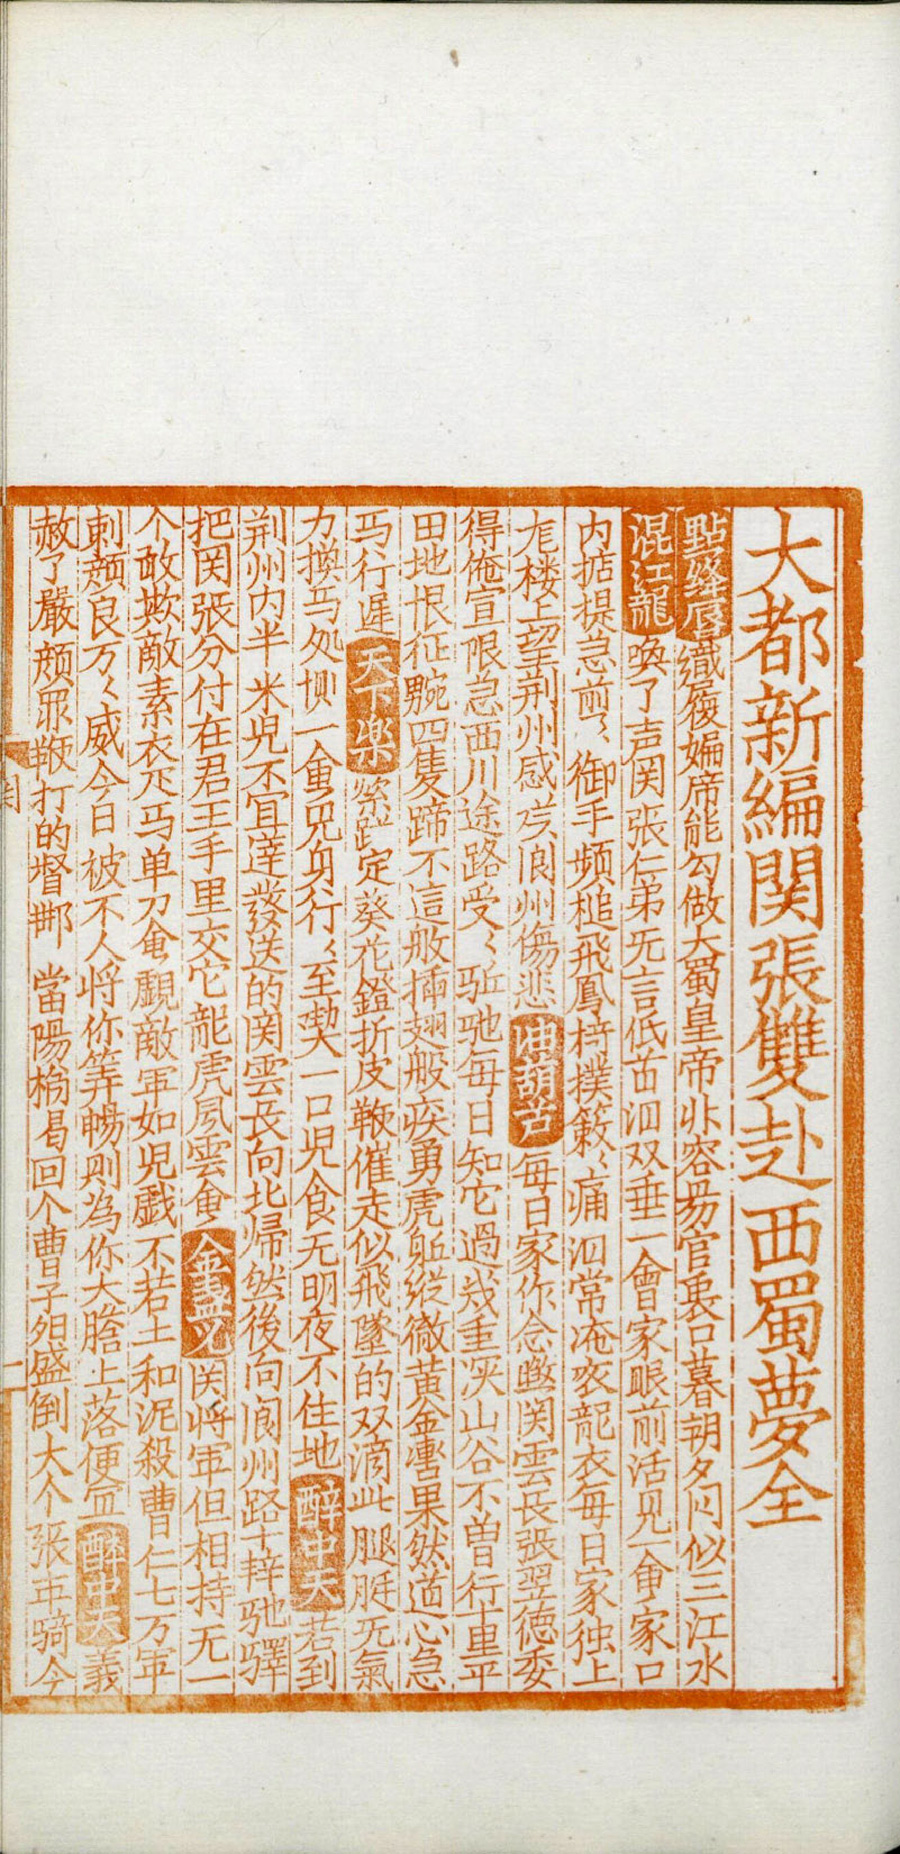 大都新編関張雙赴西蜀夢全
點絳唇織履媥席能勾做大蜀皇帝非容易官裏口暮朝夕闷似三江水
混江龍喚了声関張仁弟无言低首泪双垂一會家眼前活見一會家口
内掂提急煎〻御手頻槌飛鳳椅撲簌〻痛泪常淹衮龍衣每日家独上
危楼上望荆州感芡阆州傷悲油葫芦每日家作念煞関雲長張翌德委
得俺宣限急西川途路受〻駈馳每日知它過幾重深山谷不曽行十里平
田地恨征𩣡四隻蹄不這般揷翅般疾勇虎躯縱徹黄金轡果然道心急
馬行遲天下樂緊跐定葵花鐙折皮鞭催走似飛墜的双滴此腿脡无氣
力換馬处埧一會兒身行〻至喫一口兒食无明夜不住地醉中天若到
荆州内半米兒不宜遲發送的関雲長向北帰然後向阆州路十轉馳驛
把関張分付在君王手里交它龍虎風雲會金盞兒関将軍但相持无一
个敢欺敵素衣疋馬单刀會覷敵軍如兒戯不若土和泥殺曹仁七万軍
刺顏良万〻威今日被不人将你筭暢則為你大膽上落便宜醉中天義
赦了嚴顔罪鞭打的督郵當陽橋喝回个曹孟德倒大个張車騎今